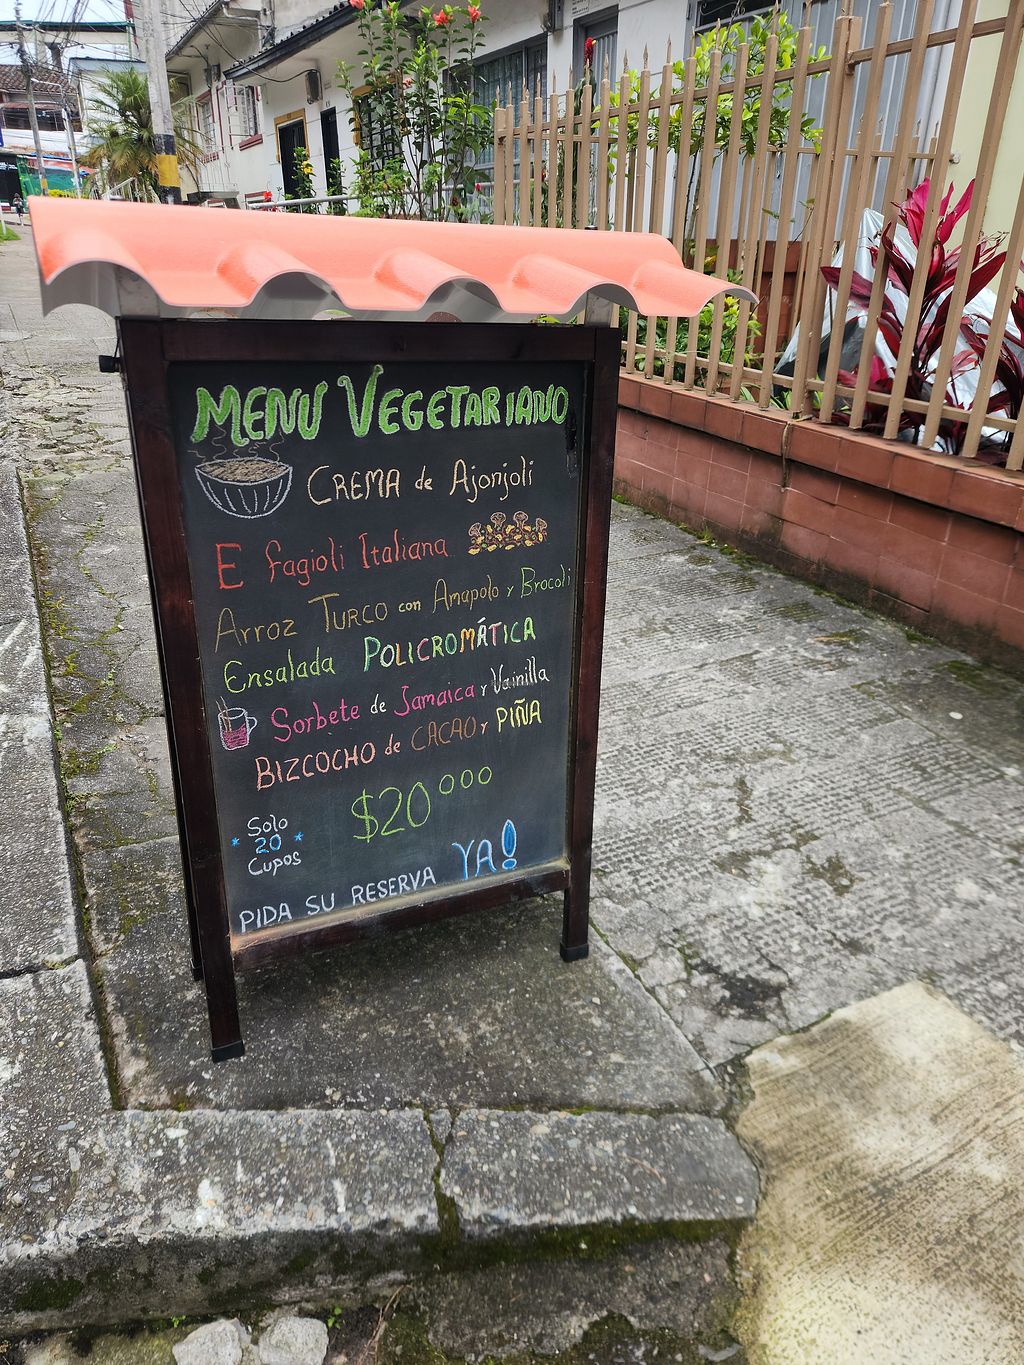 MENU VEGETARIANO
CREMA de Ajonjoli
E fagioli Italiana
Arroz TURCO con Amapolo y Brocoli
Ensalada POLICROMÁTICA
Sorbete de Jamaica y Vainilla
BIZCOCHO de CACAO y PIÑA
$20000
Solo
* 20 *
Cupos
PIDA SU RESERVA YA!